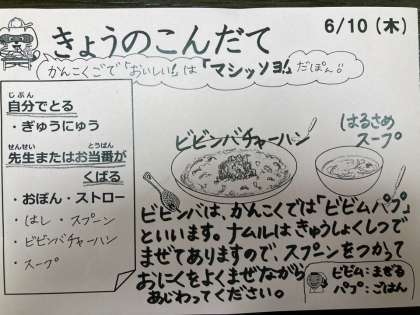 きょうのこんだて
6/10(木)
かんこくごで「おいしい!」は「マシッソヨ!」だぽん!!
じぶん
自分でとる
・ぎゅうにゅう
せんせい とうばん
先生またはお当番が
くばる
・おぼん・ストロー
・はし・スプーン
・ビビンバチャーハン
・スープ
ビビンバチャーハン
はるさめ
スープ
ビビンバは、かんこくでは「ビビムパプ」
といいます。ナムルはきゅうしょくしつで
まぜてありますので、スプーンをつかって
おにくをよくまぜながら
あじわってください。
ビビム:まぜる
パプ:ごはん